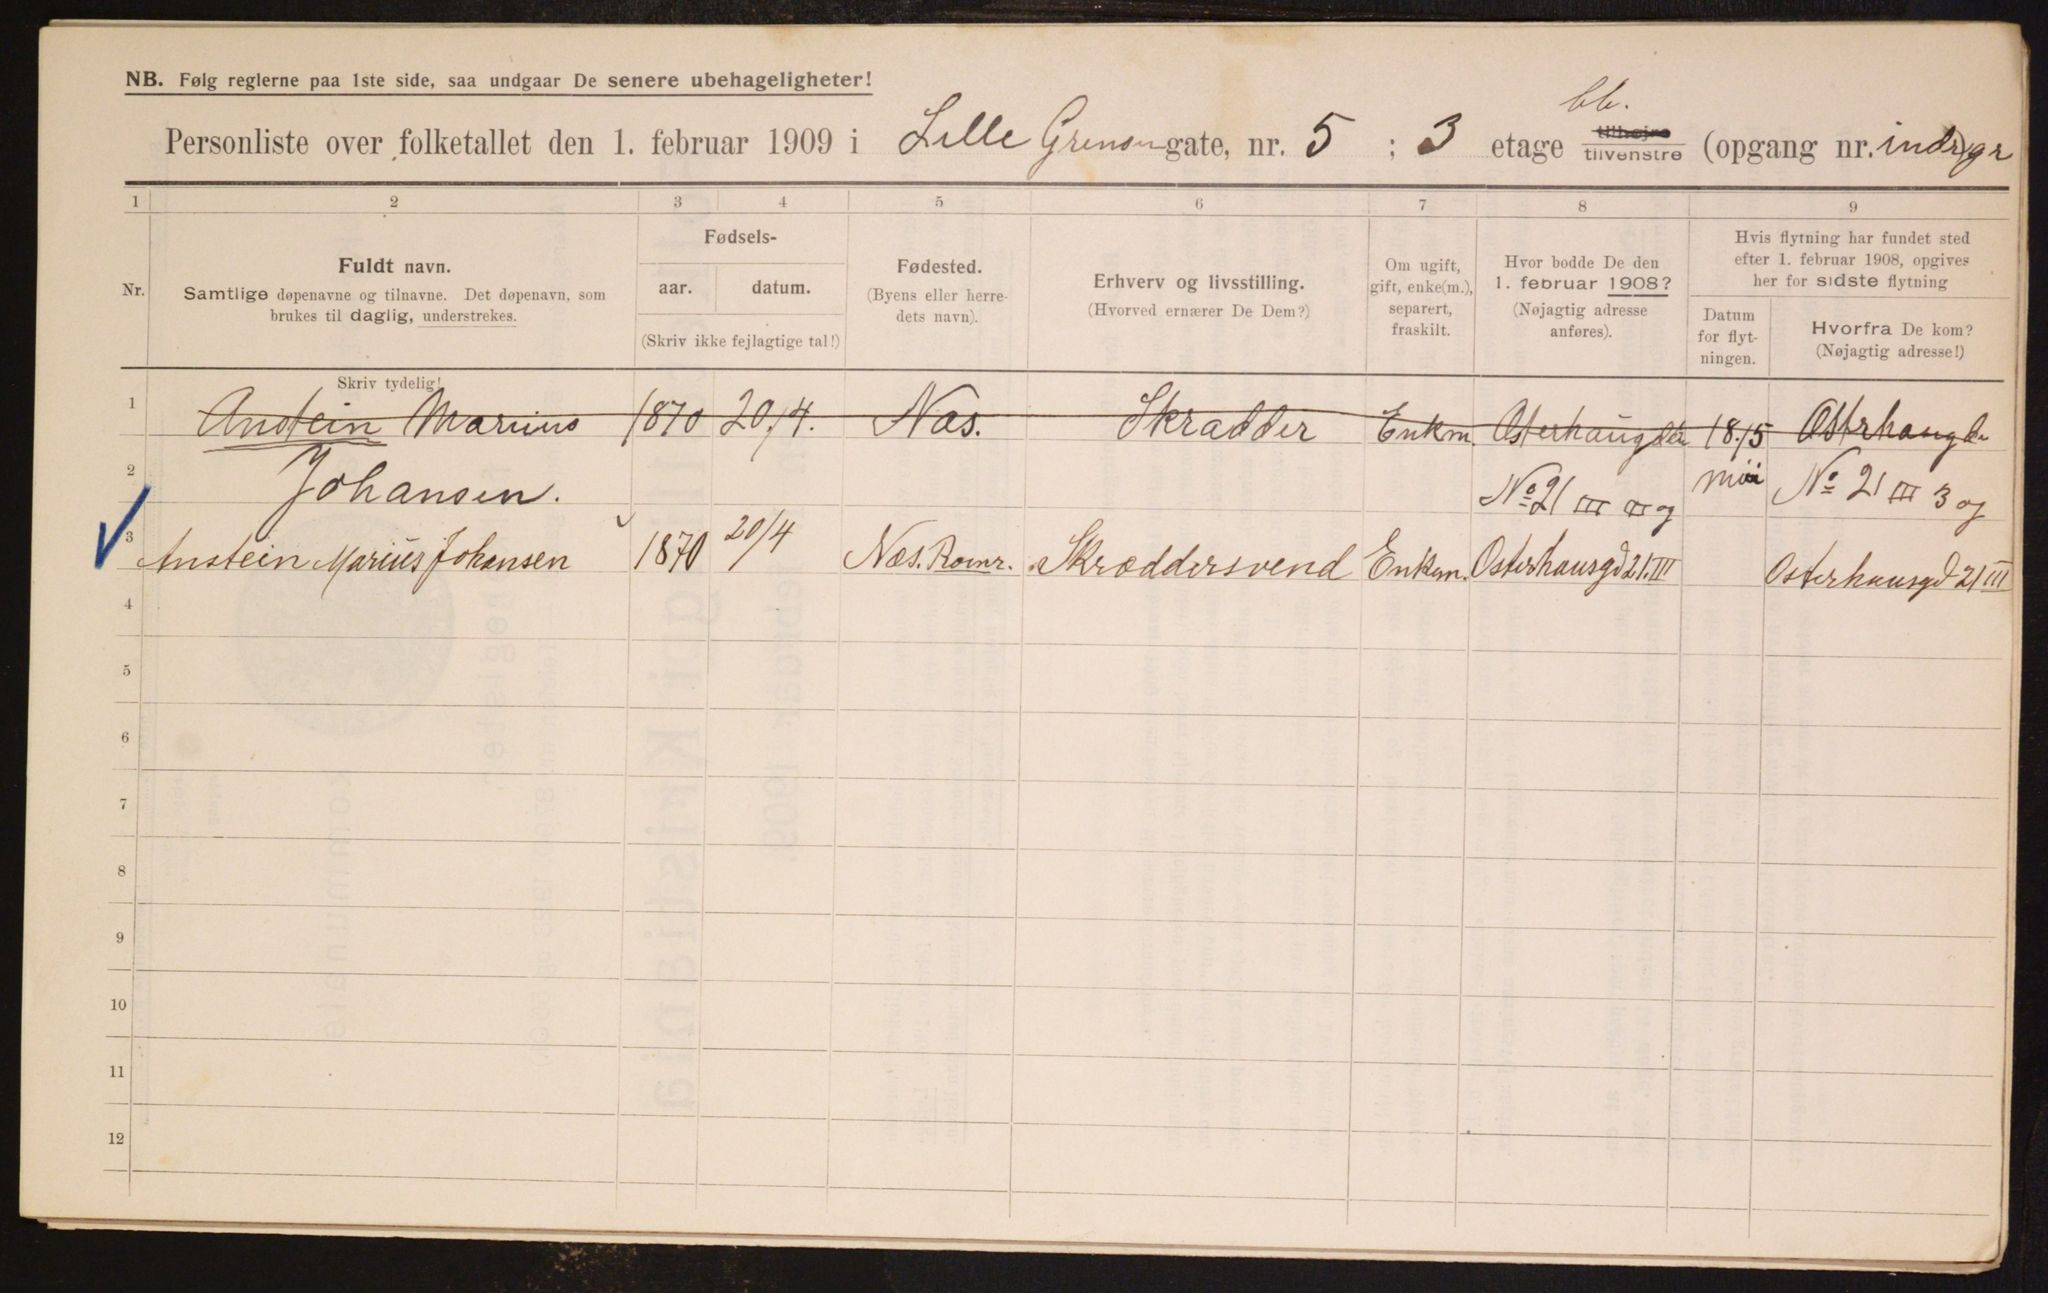 NB. Følg reglerne paa 1ste side, saa undgaar De senere ubehageligheter!
bb.
Personliste over folketallet den 1. februar 1909 i Lille Grensengate, nr. 5 ; 3 etage tilhøjre tilvenstre (opgang nr. indr)gr
1 2 3 4 5 6 7 8 9
Nr.
Fuldt navn.
Samtlige døpenavne og tilnavne. Det døpenavn, som
brukes til daglig, understrekes.
Skriv tydelig!
Fødsels-
aar. datum.
(Skriv ikke fejlagtige tal!)
Fødested.
(Byens eller herre-
dets navn).
Erhverv og livsstilling.
(Hvorved ernærer De Dem?)
Om ugift,
gift, enke(m.),
separert,
fraskilt.
Hvor bodde De den
1. februar 1908?
(Nøjagtig adresse
anføres).
Hvis flytning har fundet sted
efter 1. februar 1908, opgives
her for sidste flytning
Datum
for flyt-
ningen.
Hvorfra De kom?
(Nøjagtig adresse!)
1 Anstein Marius 1870 20/4. Næs. Skrædder Enkm. 18.15
2 Johansen. No 21 III No 21 III 3 og
3 Anstein Marius Johansen 1870 20/4 Næs. Romr. Skræddersvend Enkem. Osterhausgd 21.III Osterhausgd 21 III
4
5
6
7
8
9
10
11
12